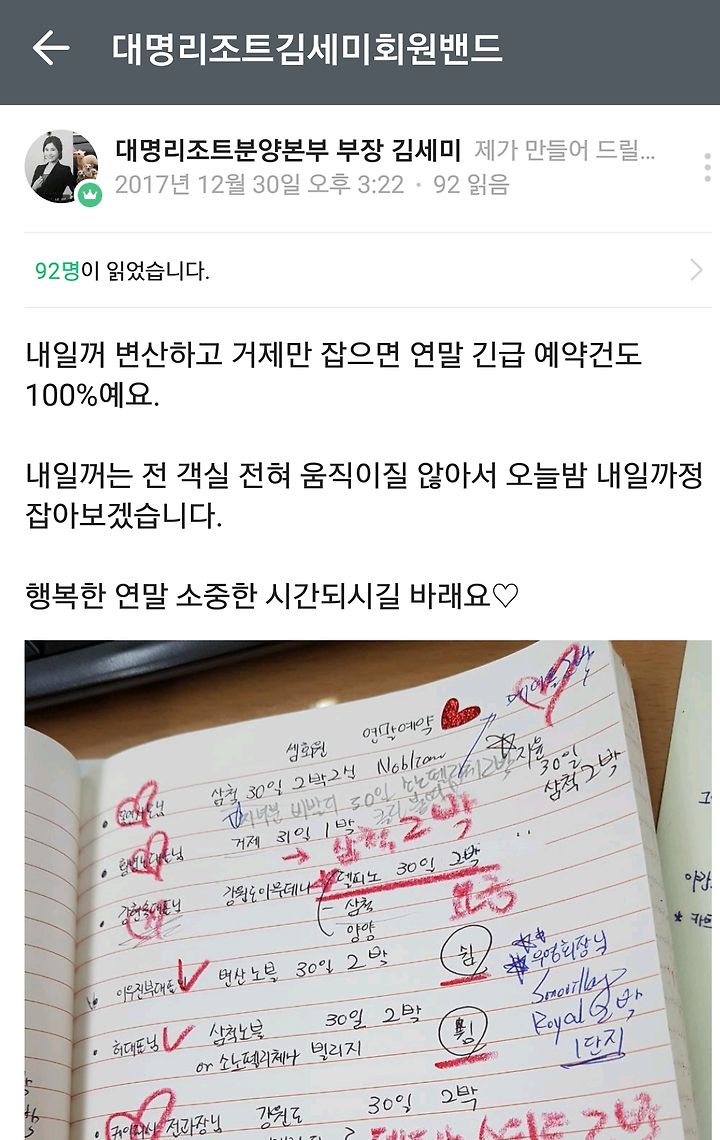 대명리조트김세미회원밴드
대명리조트분양본부 부장 김세미 제가 만들어 드릴...
2017년 12월 30일 오후 3:22 · 92 읽음
92명이 읽었습니다.
내일꺼 변산하고 거제만 잡으면 연말 긴급 예약건도
100%예요.
내일꺼는 전 객실 전혀 움직이질 않아서 오늘밤 내일까정
잡아보겠습니다.
행복한 연말 소중한 시간되시길 바래요♡
셈회원 연말예약
삼척 30일 2박2실
지윤 30일
삼척 2박
거제 31일 1박
→ 삼척 2박
강원도 델피노 30일 2박
- 삼척
양양
변산노블 30일 2박
우영회장님
Royal 2박
1단지
허대표님 삼척노블 30일 2박
or 소노펠리체나 빌리지
전과장님 강원도 30일 2박
2박